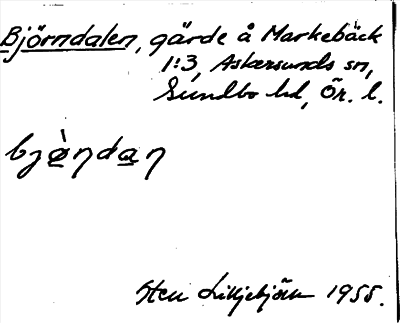 Björndalen, gärde å Markebäck
1:3, Askersunds sn,
Sundbo hd, Ör. l.
bjø̀ndan
Sten Liljebjörn 1955.